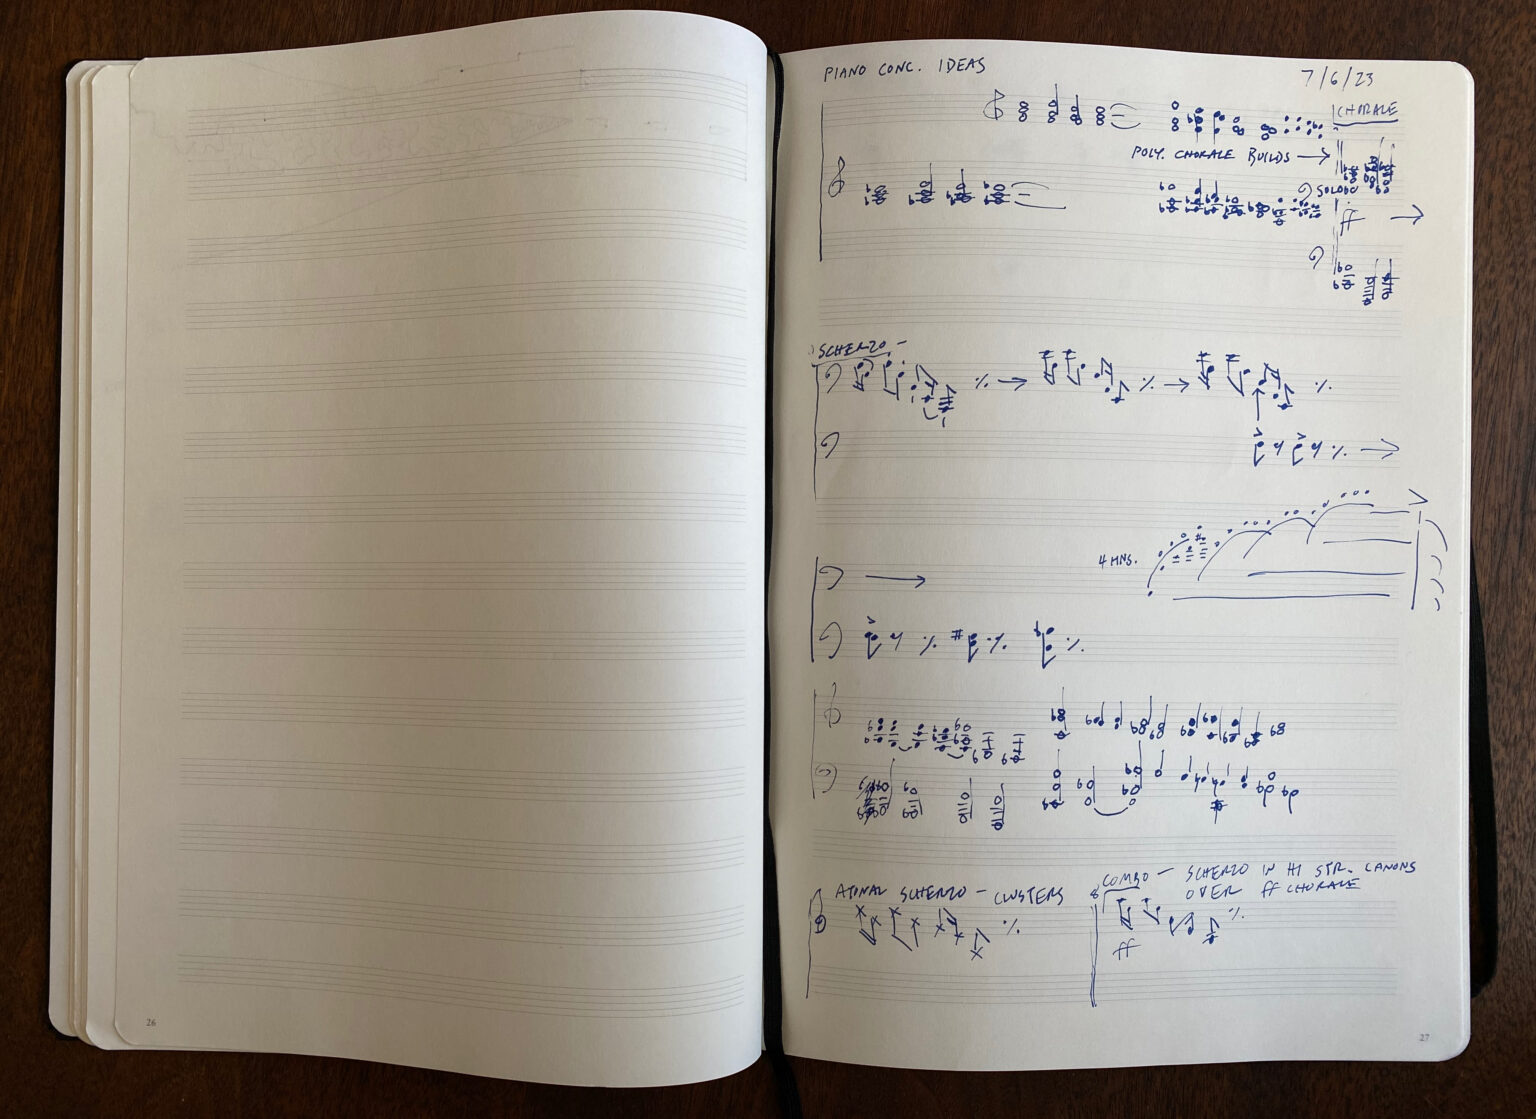 PIANO CONC. IDEAS
7/6/23
CHORALE
POLY. CHORALE BUILDS →
ff
SCHERZO –
4 HNS.
ATONAL SCHERZO – CLUSTERS
COMBO – SCHERZO IN HI STR. CANONS
OVER ff CHORALE
ff
26
27